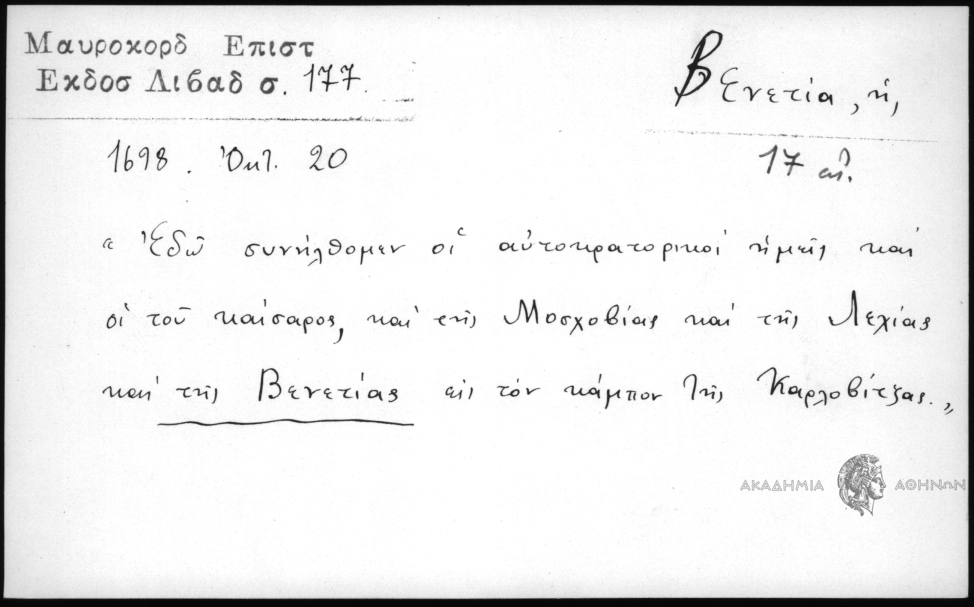 Μαυροκορδ Επιστ
Εκδοσ Λιβαδ σ. 177.
Βενετία, ἡ,
1698. Ὀκτ. 20
17 αἰ.
« Ἐδῶ συνήλθομεν οἱ αὐτοκρατορικοί ἡμεῖς καί
οἱ τοῦ καίσαρος, καί τῆς Μοσχοβίας καί τῆς Λεχίας
καί τῆς Βενετίας εἰς τόν κάμπον τῆς Καρλοβίτζας. »
ΑΚΑΔΗΜΙΑ ΑΘΗΝΩΝ